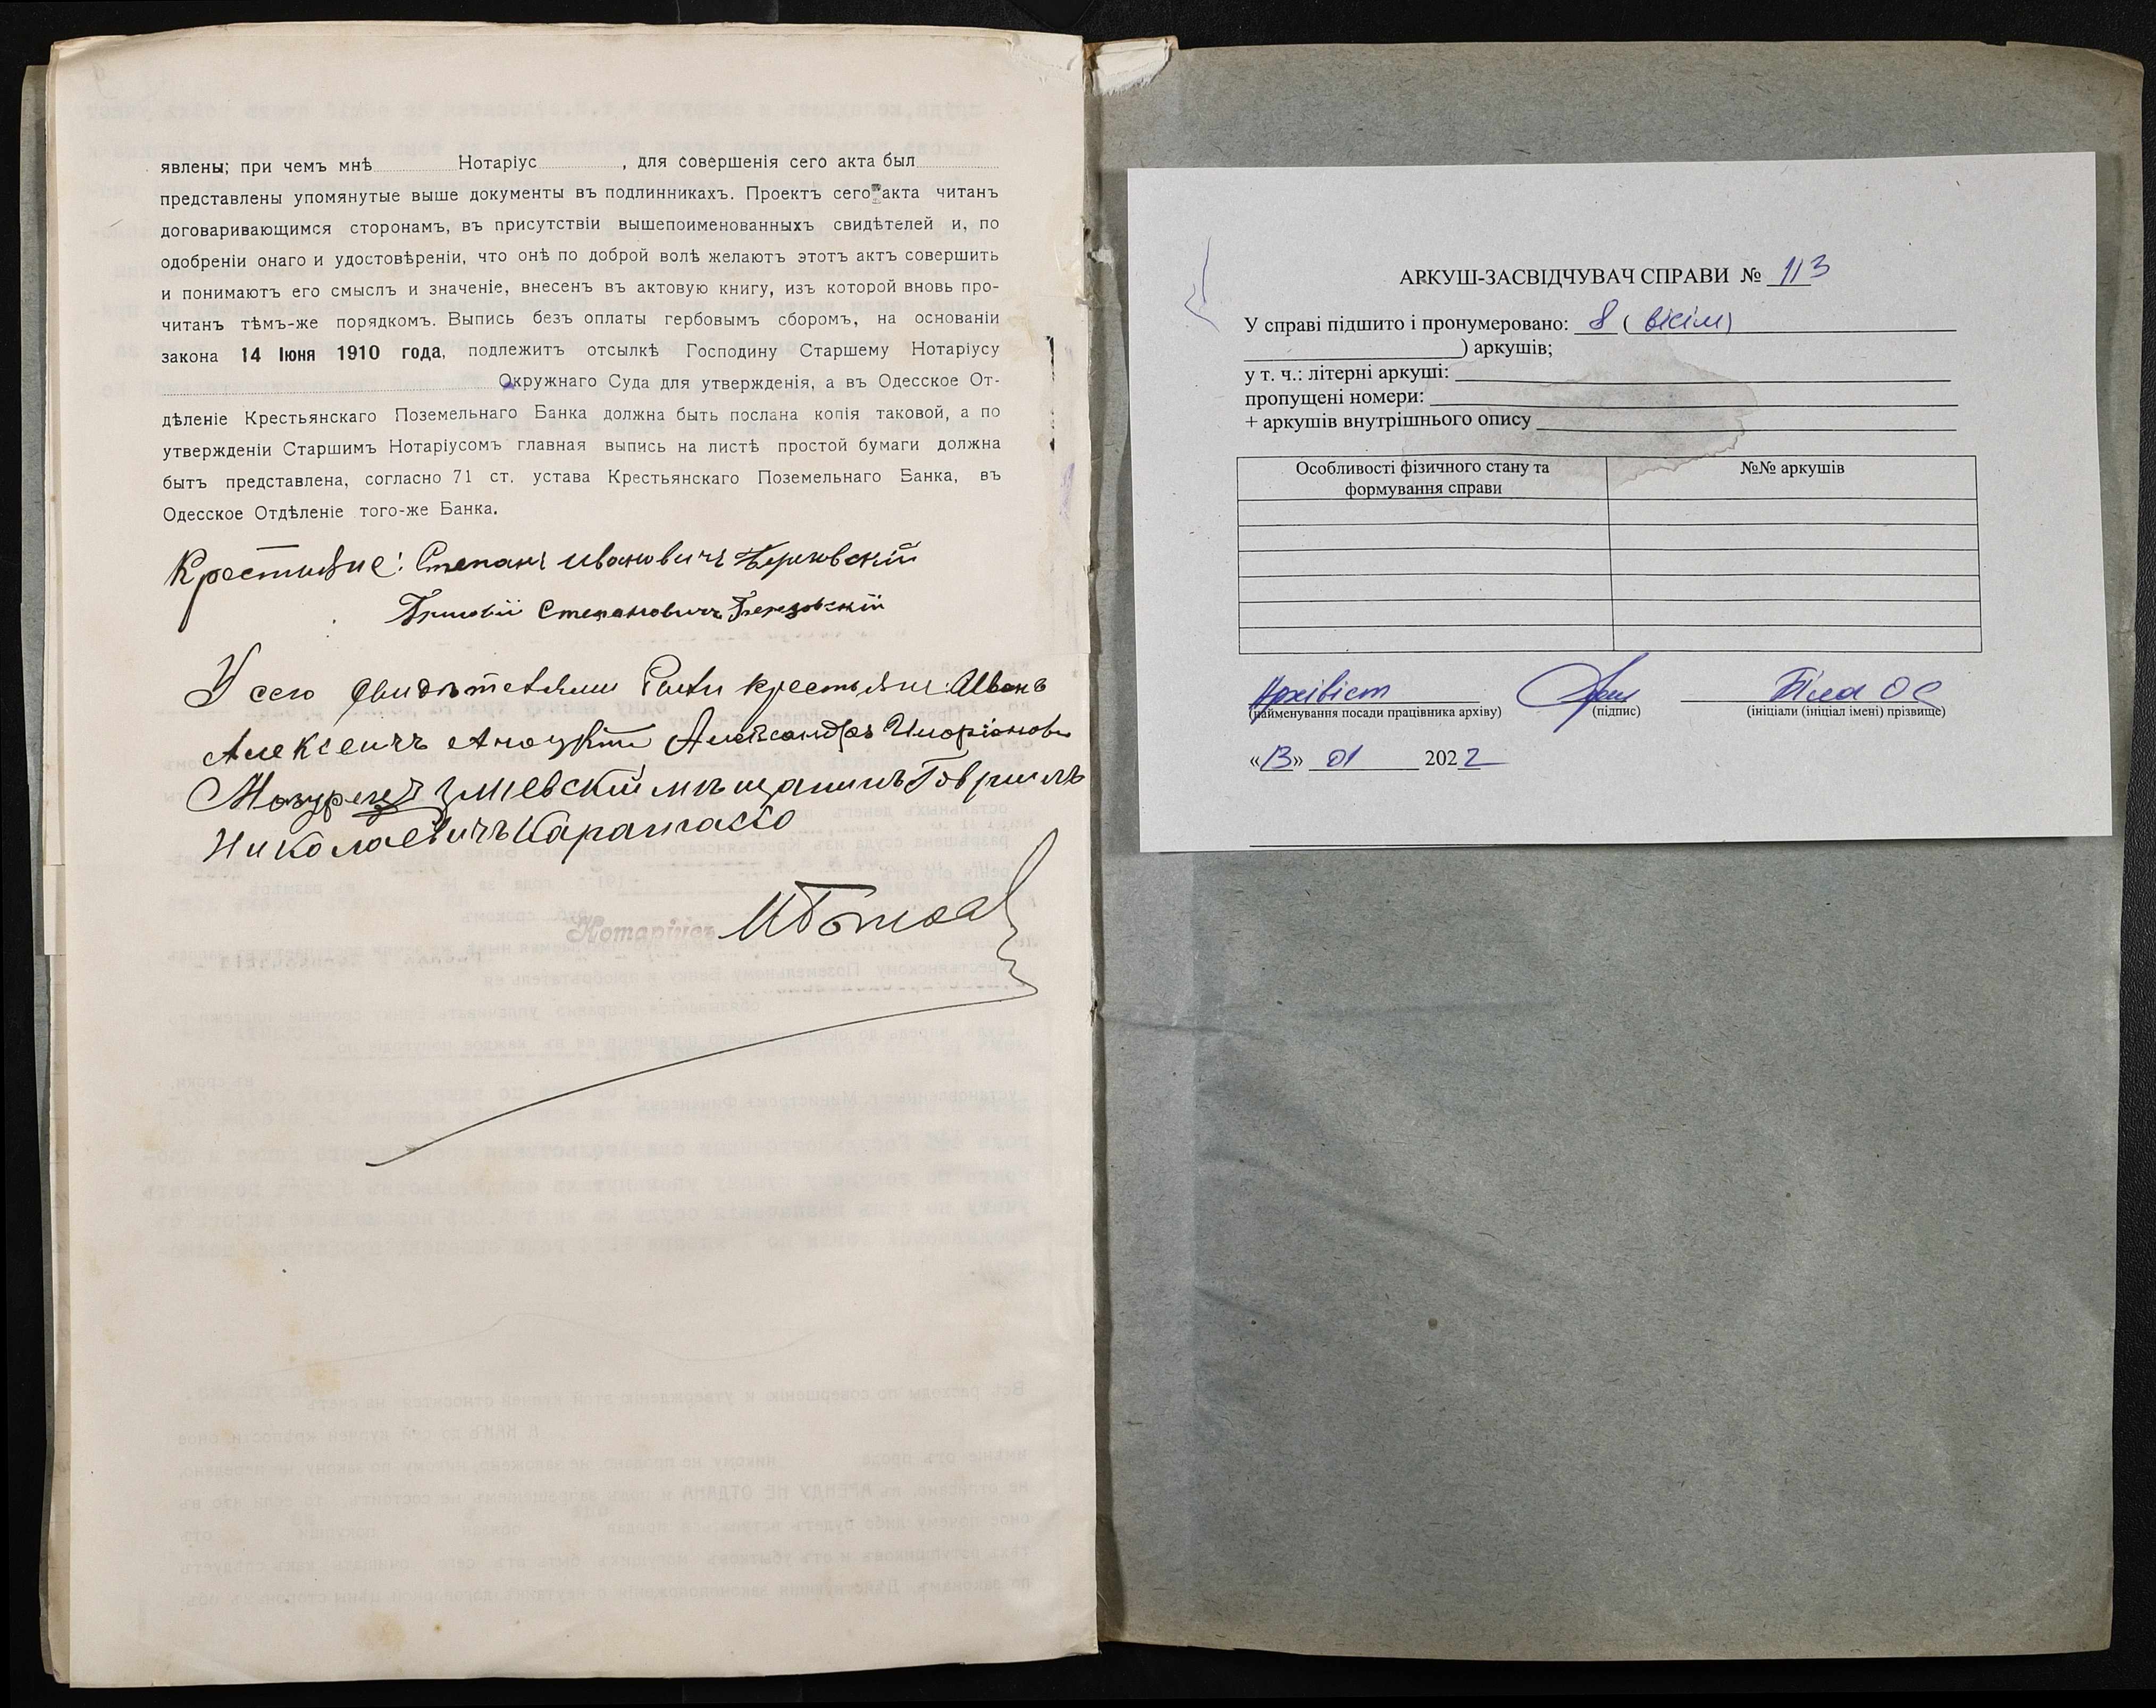 явлены; при чемъ мнѣ Нотаріус, для совершенія сего акта был
представлены упомянутые выше документы въ подлинникахъ. Проектъ сего акта читанъ
договаривающимся сторонамъ, въ присутствіи вышепоименованныхъ свидѣтелей и, по
одобреніи онаго и удостовѣреніи, что онѣ по доброй волѣ желаютъ этотъ актъ совершить
и понимаютъ его смыслъ и значеніе, внесенъ въ актовую книгу, изъ которой вновь про-
читанъ тѣмъ-же порядкомъ. Выпись безъ оплаты гербовымъ сборомъ, на основаніи
закона 14 Іюня 1910 года, подлежитъ отсылкѣ Господину Старшему Нотаріусу
Окружнаго Суда для утвержденія, а въ Одесское От-
дѣленіе Крестьянскаго Поземельнаго Банка должна быть послана копія таковой, а по
утвержденіи Старшимъ Нотаріусомъ главная выпись на листѣ простой бумаги должна
быть представлена, согласно 71 ст. устава Крестьянскаго Поземельнаго Банка, въ
Одесское Отдѣленіе того-же Банка.
Степанъ Ивановичъ
Степановичъ Березовскій
У сего свидѣтелями были крестьяне: Иванъ
Алексеичъ Александръ
мѣщанинъ Гавріилъ
Николаевичъ
Нотаріусъ
АРКУШ-ЗАСВІДЧУВАЧ СПРАВИ № 113
У справі підшито і пронумеровано: 8 ( вісім)
) аркушів;
у т. ч.: літерні аркуші:
пропущені номери:
+ аркушів внутрішнього опису
Особливості фізичного стану та №№ аркушів
формування справи
Архівіст Біла О С
(найменування посади працівника архіву) (підпис) (ініціали (ініціал імені) прізвище)
«13» 01 2022